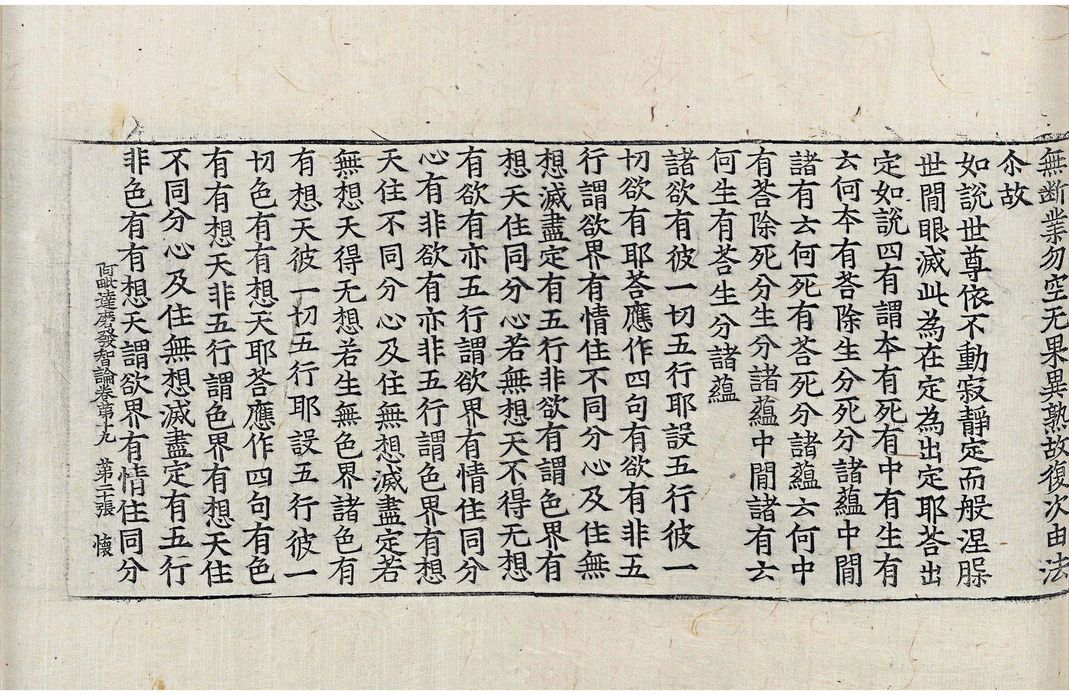 無断業勿空无果異熟故復次由法
尒故
如說世尊依不動寂靜定而般涅膎
世間眼滅此為在定為出定耶荅出
定如說四有謂本有死有中有生有
云何本有荅除生分死分諸蘊中間
諸有云何死有荅死分諸蘊云何中
有荅除死分生分諸蘊中間諸有云
何生有荅生分諸蘊
諸欲有彼一切五行耶設五行彼一
切欲有耶荅應作四句有欲有非五
行謂欲界有情住不同分心及住無
想滅盡定有五行非欲有謂色界有
想天住同分心若無想天不得无想
有欲有亦五行謂欲界有情住同分
心有非欲有亦非五行謂色界有想
天住不同分心及住無想滅盡定若
無想天得无想若生無色界諸色有
有想天彼一切五行耶設五行彼一
切色有有想天耶荅應作四句有色
有有想天非五行謂色界有想天住
不同分心及住無想滅盡定有五行
非色有有想天謂欲界有情住同分
阿毗達磨發智論卷第十九 第二十張 懷